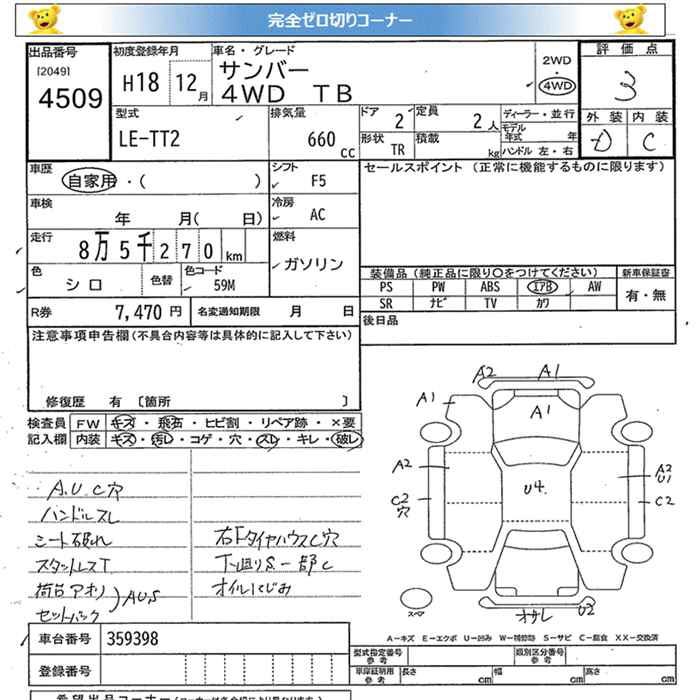 完全ゼロ切りコーナー
出品番号
[2049]
4509
初度登録年月
H18 12月
車名・グレード
サンバー
4WD TB
2WD
4WD
評価点
3
外装 内装
D C
型式
LE-TT2
排気量
660 CC
ドア 2
定員 2人
ディーラー・並行
モデル年式 年
形状 TR
積載 kg
ハンドル 左・右
車歴
自家用・( )
シフト
F5
セールスポイント (正常に機能するものに限ります)
車検
年 月( 日)
冷房
AC
走行
8万5千270km
燃料
ガソリン
色
シロ
色替
色コード
59M
装備品 (純正品に限り〇をつけてください)
新車保証書
PS PW ABS エアB AW
有・無
SR ナビ TV カワ
R券 7,470円
名変通知期限 月 日
後日品
注意事項申告欄(不具合内容等は具体的に記入して下さい)
修復歴 有 〔箇所 〕
検査員 FW キズ・飛石・ヒビ割・リペア跡・×要
記入欄 内装 キズ・汚レ・コゲ・穴・スレ・キレ・破レ
A.U.C穴
ハンドルスレ
シート破れ
スタットレスT
荷台アオリ
セットバック
AUS
右FタイヤハウスC穴
下廻りS一部C
オイルにじみ
A2 A1
A1
A1
A2
C2
穴
U4.
A2
U1
C2
スペア
オサレ U2
A-キズ E-エクボ U-凹み W-補修跡 S-サビ C-腐食 XX-交換済
車台番号 359398
登録番号
型式指定番号
参考
類別区分番号
参考
車庫証明用
参考
長さ cm
幅 cm
高さ cm
希望出品コーナー